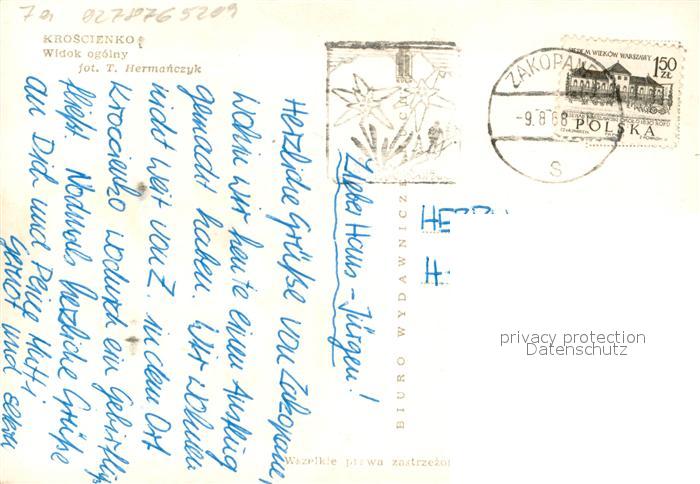 7a 0278765209
KROŚCIENKO
Widok ogólny
fot. T. Hermańczyk
SIEDEM WIEKÓW WARSZAWY
1.50
ZŁ
POLSKA
ZAKOPANE
-9.8.68
S
BIURO WYDAWNICZE
Wszelkie prawa zastrzeżon
Lieber Hans-Jürgen!
Herzliche Grüße von Zakopane,
wohin wir heute einen Ausflug
gemacht haben. Wir wohnen
nicht weit von Z. in dem Ort
Kroscienko wodurch ein Gebirgsfluß
fließt. Nochmals herzliche Grüße
an Dich und Deine Mutti
Gernot und
privacy protection
Datenschutz